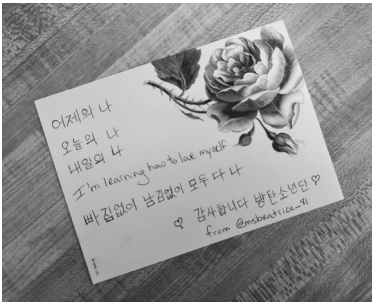 어제의 나
오늘의 나
내일의 나
I'm learning how to love myself
빠짐없이 남김없이 모두 다 나
♡ 감사합니다 방탄소년단 ♡
from @msbeatrice_81